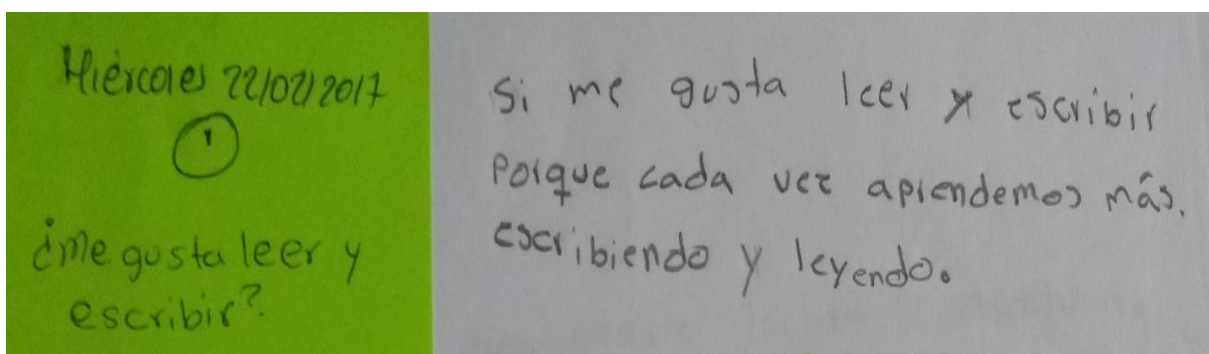 Miércoles 22/02/2017
1
¿me gusta leer y
escribir?
Si me gusta leer y escribir
Porque cada vez aprendemos más.
escribiendo y leyendo.